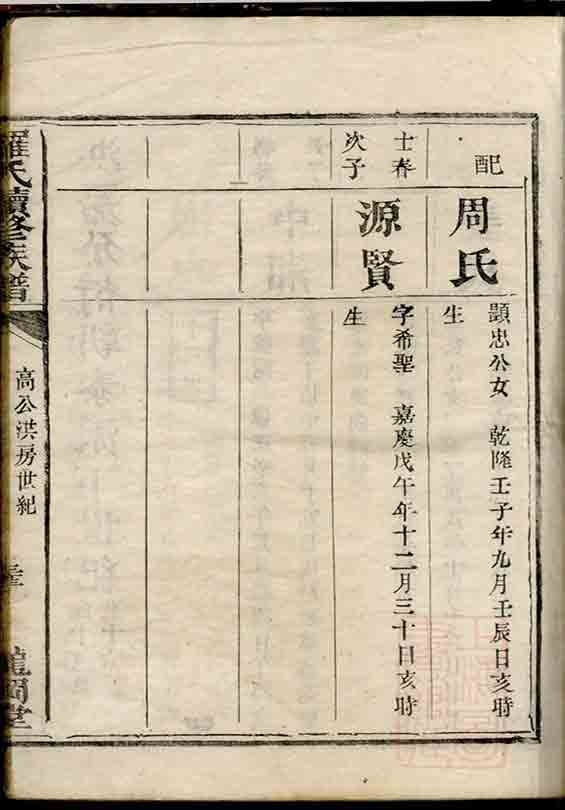 配
周氏
顯忠公女 乾隆壬子年九月壬辰日亥時
生
士春
次子
源賢
字希聖 嘉慶戊午年十二月三十日亥時
生
羅氏續修族譜
高公洪房世紀